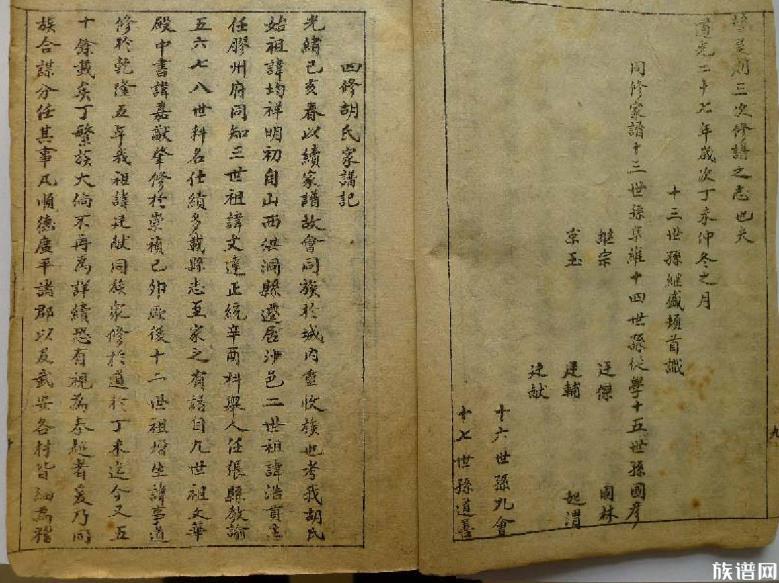 三次修譜之志也夫
道光二十七年歲次丁未仲冬之月
十三世孫繼盛頓首識
同修家譜十三世孫集維十四世孫從學十五世孫國彥
繼宗 廷傑 國林
京玉 廷輔 起渭
廷献
十六世孫孔會
十七世孫道善
四修胡氏家譜記
光緒己亥春以續家譜故會同族於城內重收族也考我胡氏
始祖諱均祥明初自山西洪洞縣遷居沙邑二世祖諱浩貢生
任膠州府同知三世祖諱文達正統辛酉科舉人任張縣教諭
五六七八世科名仕績多載縣志至家之有語自九世祖文華
殿中書諱嘉猷肇修於崇禎己卯厥後十二世祖增生諱事道
修於乾隆五年我祖諱廷献同族家修於道於丁未迄今又五
十餘載矣丁繁族大倘不再為詳續恐有視為秦越者爰乃同
族合謀分任其事凡順德廣平諸郡以及武安各村皆細為稽
族谱网